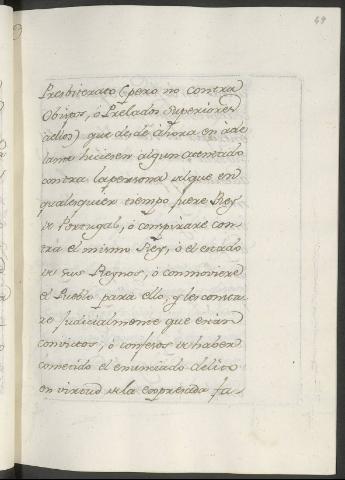 49
Presbiterato (pero no contra
Obispos, ó Prelados Superiores
á ellos) que desde ahora en ade
lante hiciesen algun atentado
contra la persona del que en
qualesquier tiempo fuere Rey
de Portugal, ó conspirare con
tra el mismo Rey, ó el estado
de sus Reynos, ó conmoviere
el Pueblo para ello, y les consta
re judicialmente que estan
convictos, ó confesos de haber
cometido el enunciado delito
en virtud de la expresada fa-